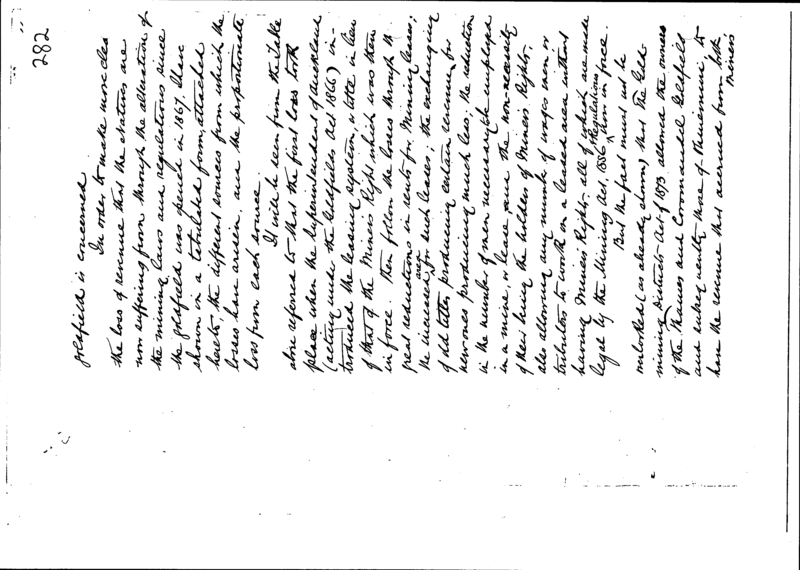 282
goldfield is concerned
In order to make more clear
the loss of revenue that the natives are
now suffering from through the alteration of
the mining laws and regulations since
the goldfield was opened in 1867, I have
shown in a tabulated form, attached
hereto, the different sources from which the
losses have arisen, and the proportionate
loss from each source.
It will be seen from the table
above referred to that the first loss took
place when the Superintendent of Auckland
(acting under the Goldfields Act 1866) in-
troduced the leasing system, or title in lieu
of that of the Miner's Right which was then
in force. Then follow the losses through the
great reductions in rents for Mining leases;
the increased area for such leases; the exchanging
of old titles producing certain revenue for
new ones producing much less; the reduction
in the number of men necessary to be employed
in a mine, or lease, and the non-necessity
of their being the holders of Miner's Rights,
also allowing any number of wages men or
tributers to work on a leased area without
having Miner's Rights, all of which are made
legal by the Mining Act, 1886 & Regulations now in force.
But the fact must not be
overlooked (as already shown) that the Gold-
mining Districts Act of 1873 allowed the owners
of the Thames and Coromandel Goldfields
and subsequently those of Ohinemuri to
have the revenue that accrued from both
Miner's